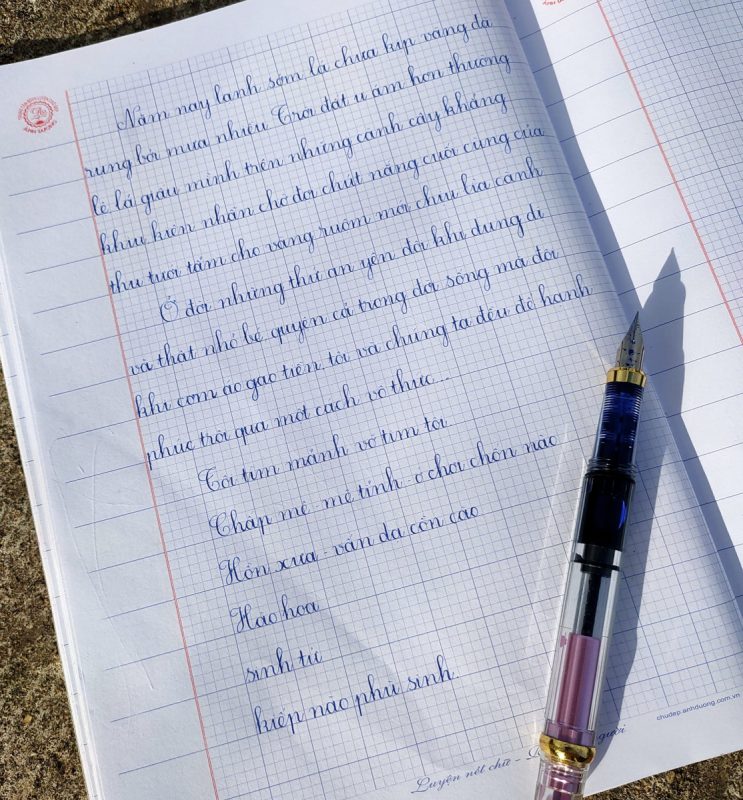 Năm nay lạnh sớm lá chưa kịp vàng đã
rụng bởi mưa nhiều. Trời đất u ám hơn thường
lệ lá giấu mình trên những cành cây khẳng
khiu kiên nhẫn chờ đợi chút nắng cuối cùng của
thu tưới tắm cho vàng ruộm mới chịu lìa cành
Ở đời những thứ an yên đôi khi dung dị
và thật nhỏ bé quyện cả trong đời sống mà đôi
khi cơm áo gạo tiền tôi và chúng ta đều để hạnh
phúc trôi qua một cách vô thức...
Tôi tìm mảnh vỡ tim tôi
Thấp mê - mê tỉnh - ở chơi chốn nào
Hồn xưa - vẫn da cồn cào
Hào hoa
sinh tử
kiếp nào phù sinh.
ÁNH DƯƠNG
Luyện nét chữ -
người
chudep.anhduong.com.vn